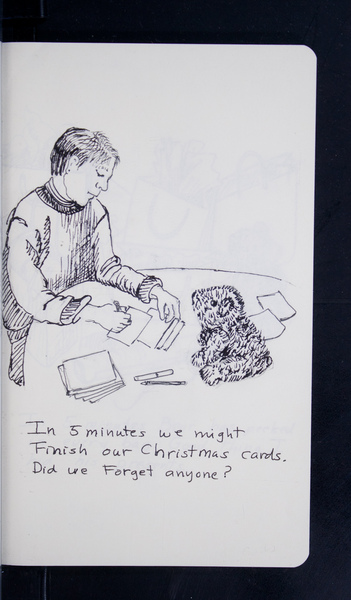 In 5 minutes we might
Finish our Christmas cards.
Did we Forget anyone?